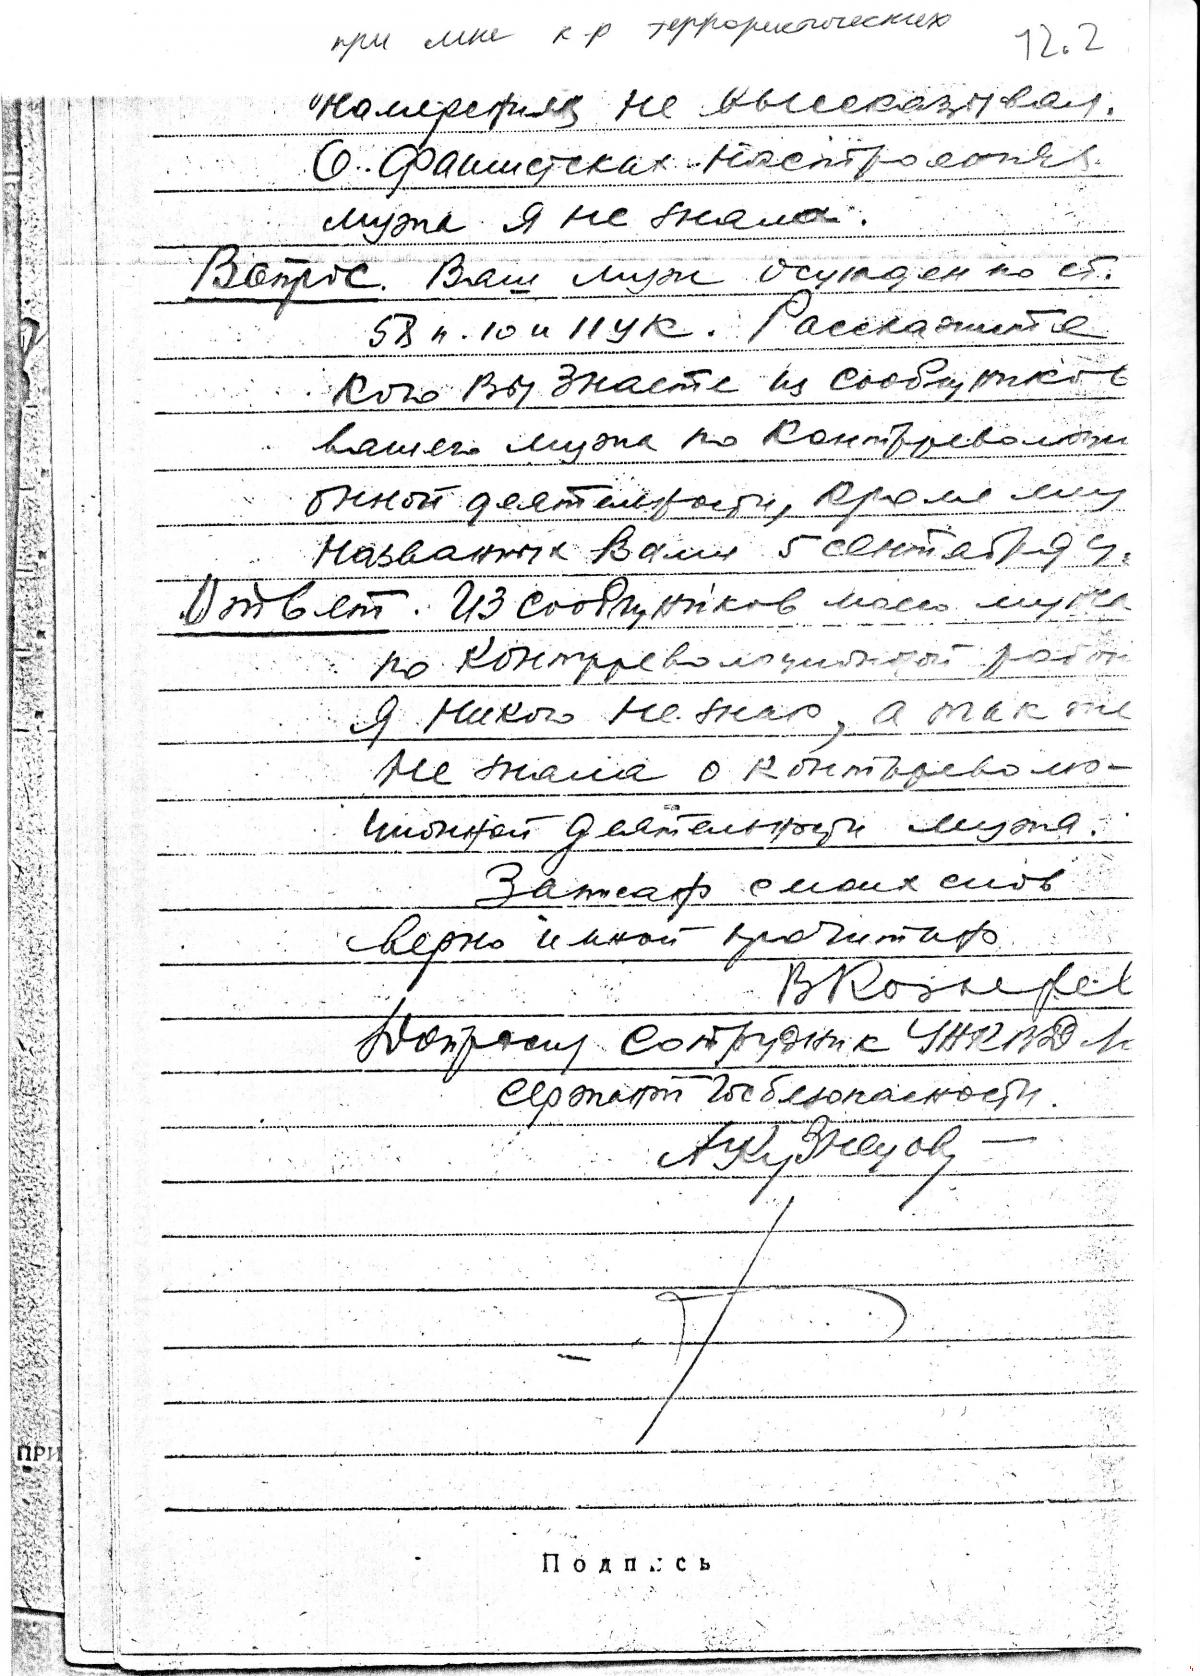 при мне к-р террористических
12.2
намерениях не высказывал.
О фашистских настроениях
мужа я не знала.
Вопрос. Ваш муж осужден по ст.
58 п. 10 и 11 УК. Расскажите
кого Вы знаете из сообщников
вашего мужа по контрреволюци
онной деятельности, кроме
названных Вами 5 сентября
Ответ. Из сообщников моего мужа
по контрреволюционной работе
я никого не знаю, а так же
не знала о контрреволю-
ционной деятельности мужа.
Записано с моих слов
верно и мной прочитано
Допросил сотрудник УНКВД
сержант госбезопасности.
А Кузнецов
ПРИ
Подпись